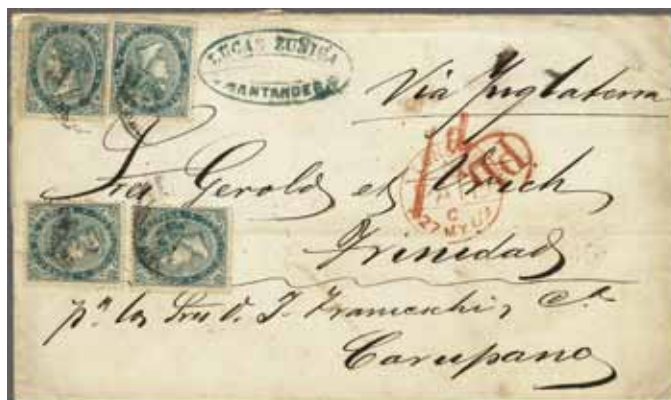 LUCAS ZUÑIGA
SANTANDER
Via Inglaterra
1d
Sres Gerold et Urich
Trinidad
C
27 MY
pa los Sres D. J. Franceschi y Ca
Carupano